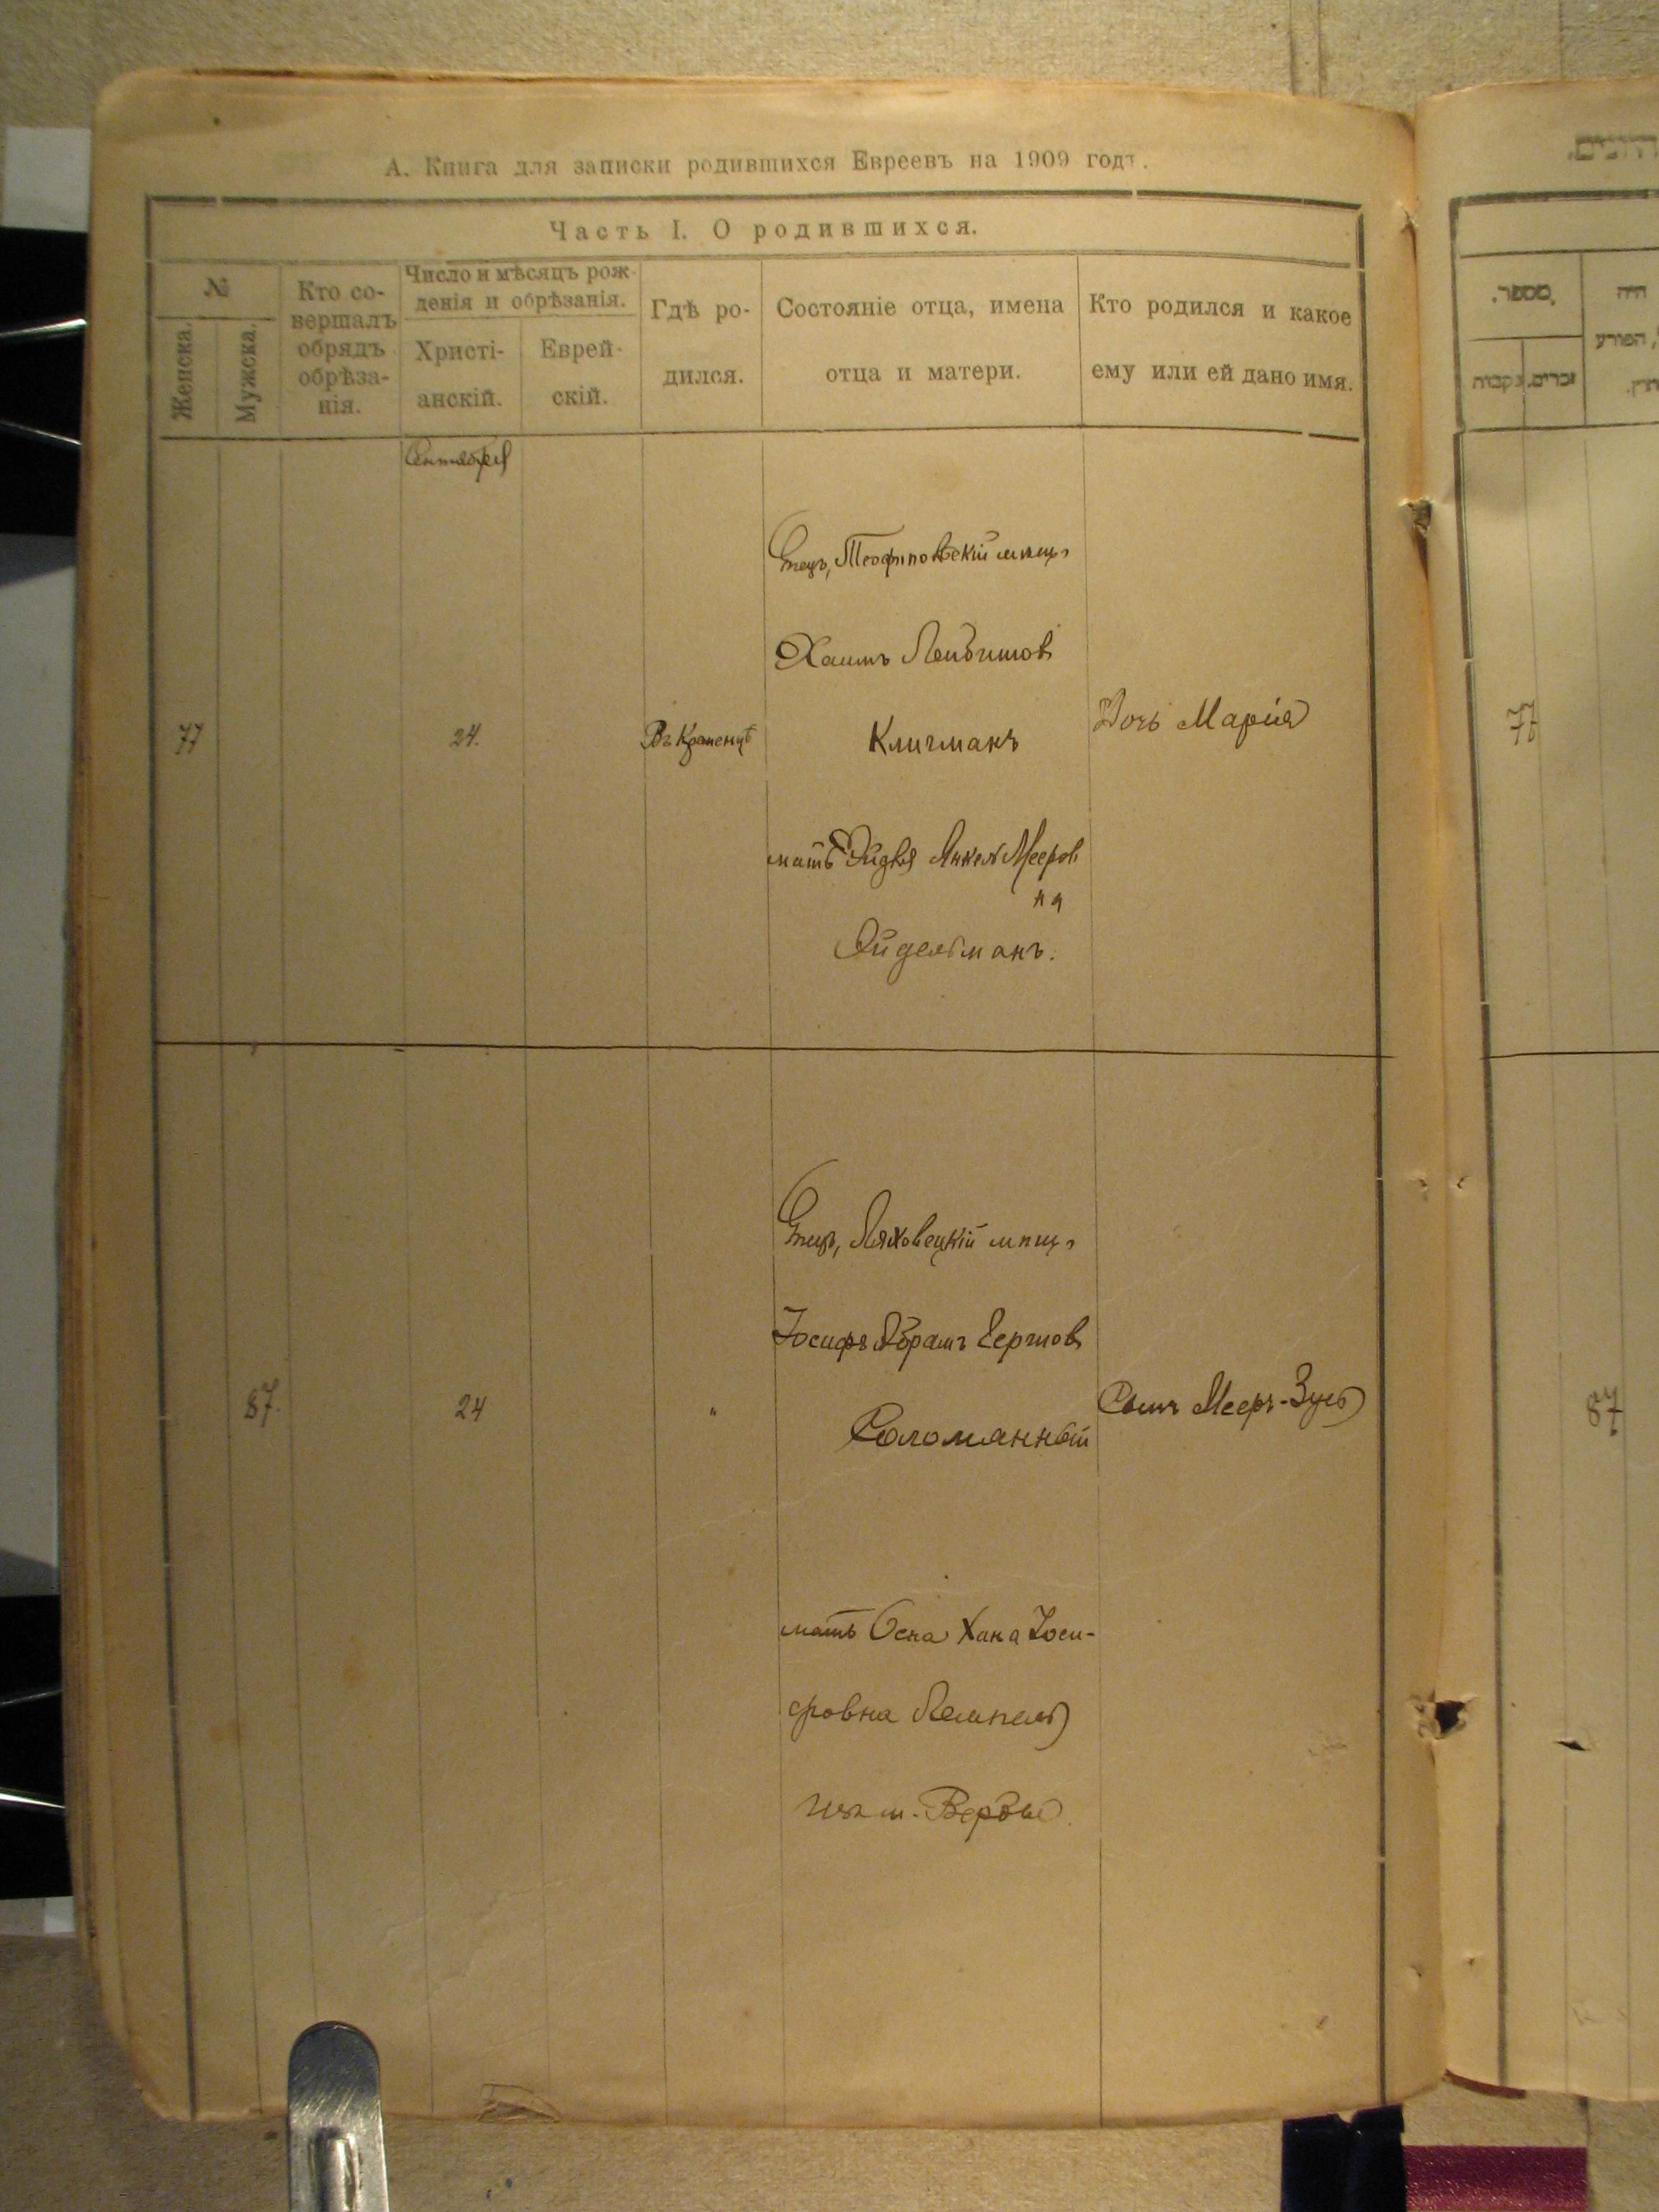 А. Книга для записки родившихся Евреевъ на 1909 годъ.
Часть I. О родившихся.
№
Женска.
Мужска.
Кто совершалъ обрядъ обрѣзанія.
Число и мѣсяцъ рожденія и обрѣзанія.
Христіанскій.
Еврейскій.
Гдѣ родился.
Состояніе отца, имена отца и матери.
Кто родился и какое ему или ей дано имя.
Сентября
77
24.
Въ Кременцѣ
Отецъ, Теофипольскій мѣщ.
Хаимъ Лейбишов
Кличманъ
мать Эйдля Янкел Мееров
на
Ойдельманъ.
Дочь Марія
87.
24
"
Отецъ, Ляховецкій мѣщ.
Іосифъ Абрамъ Гершов
Соломянный
мать Осна Хана Іоси-
фовна Лемпель
изъ м. Вербы.
Сынъ Мееръ-Зусь
מספר.
זכרים.
נקבות
היה
77
87